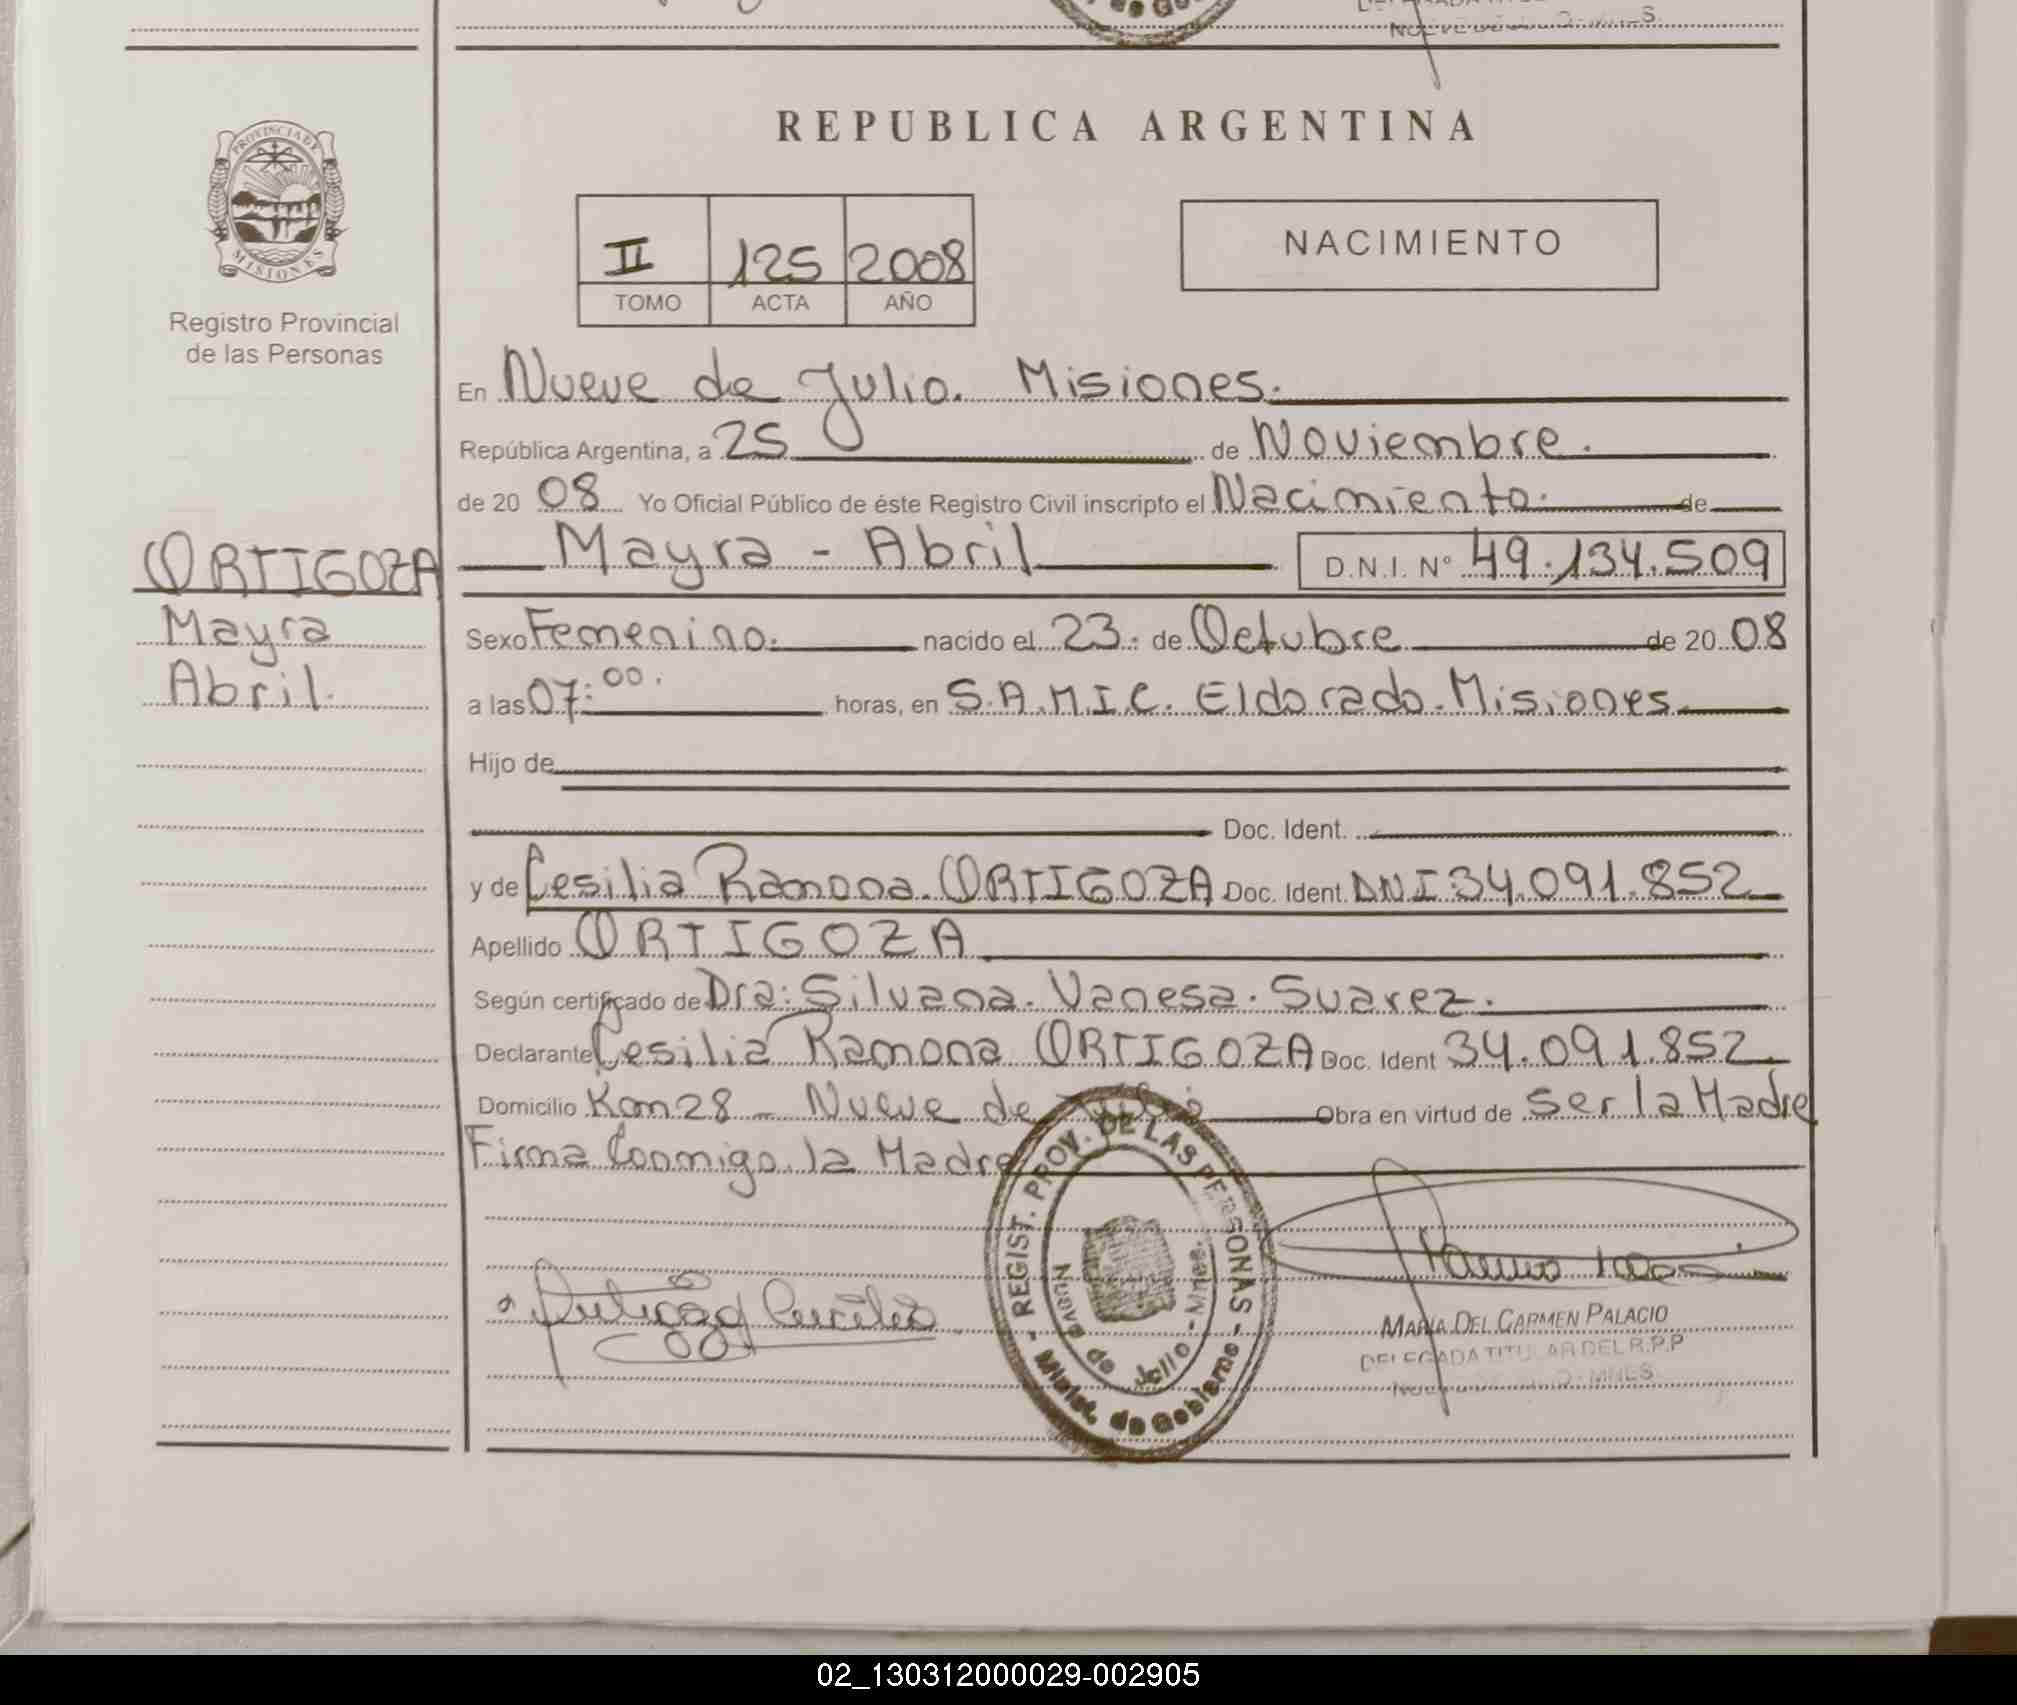 REPUBLICA ARGENTINA
PROVINCIA DE
MISIONES
Registro Provincial
de las Personas
II 125 2008
TOMO ACTA AÑO
NACIMIENTO
En Nueve de Julio. Misiones.
República Argentina, a 25 de Noviembre.
de 20 08 Yo Oficial Público de éste Registro Civil inscripto el Nacimiento. de
ORTIGOZA
Mayra
Abril.
Mayra - Abril D.N.I. N° 49.134.509
Sexo Femenino. nacido el 23. de Octubre de 20 08
a las 07:00. horas, en S.A.M.I.C. Eldorado. Misiones.
Hijo de
Doc. Ident.
y de Cesilia Ramona. ORTIGOZA Doc. Ident. DNI:34.091.852
Apellido ORTIGOZA
Según certificado de Dra: Silvana. Vanesa. Suarez.
Declarante Cesilia Ramona ORTIGOZA Doc. Ident 34.091.852.
Domicilio Km28 - Nueve de Julio Obra en virtud de ser la Madre
Firma Conmigo la Madre
REGIST. PROV. DE LAS PERSONAS
Minist. de Gobierno
Nueve de Julio - Mnes.
MARIA DEL CARMEN PALACIO
DELEGADA TITULAR DEL R.P.P
02_130312000029-002905